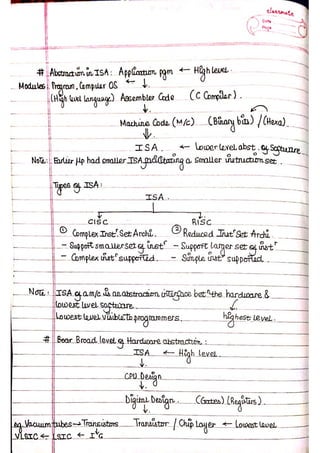 classmate
Date
Page
# Abstraction in ISA: Application pgm ← High level.
Modules: Program, Compiler OS ← ↓.
(High level language) Assembler Code (C Compiler).
↓.
Machine Code (M/C) (Binary bits) / (Hexa).
⇓.
ISA. ← Lower level abst. of Software.
Note: Earlier μp had smaller ISA, a smaller instruction set.
Types of ISA:
ISA.
CISC RISC
① Complex Instr Set Archi. ② Reduced Instr Set Archi.
- Support smaller set of instr - Support larger set of instr
- Complex instr supported. - Simple instr supported.
Note: ISA of a m/c is an abstraction interface betn the hardware &
lowest level software.
Lowest level visible to programmers. highest level.
# Broad level of Hardware abstraction:
ISA ← High level.
↓.
CPU Design
↓.
Digital Design. (Gates) (Registers).
↓.
eg. Vacuum tubes → Transistors Transistor / Chip Layer ← Lowest level
VLSIC ← LSIC ←